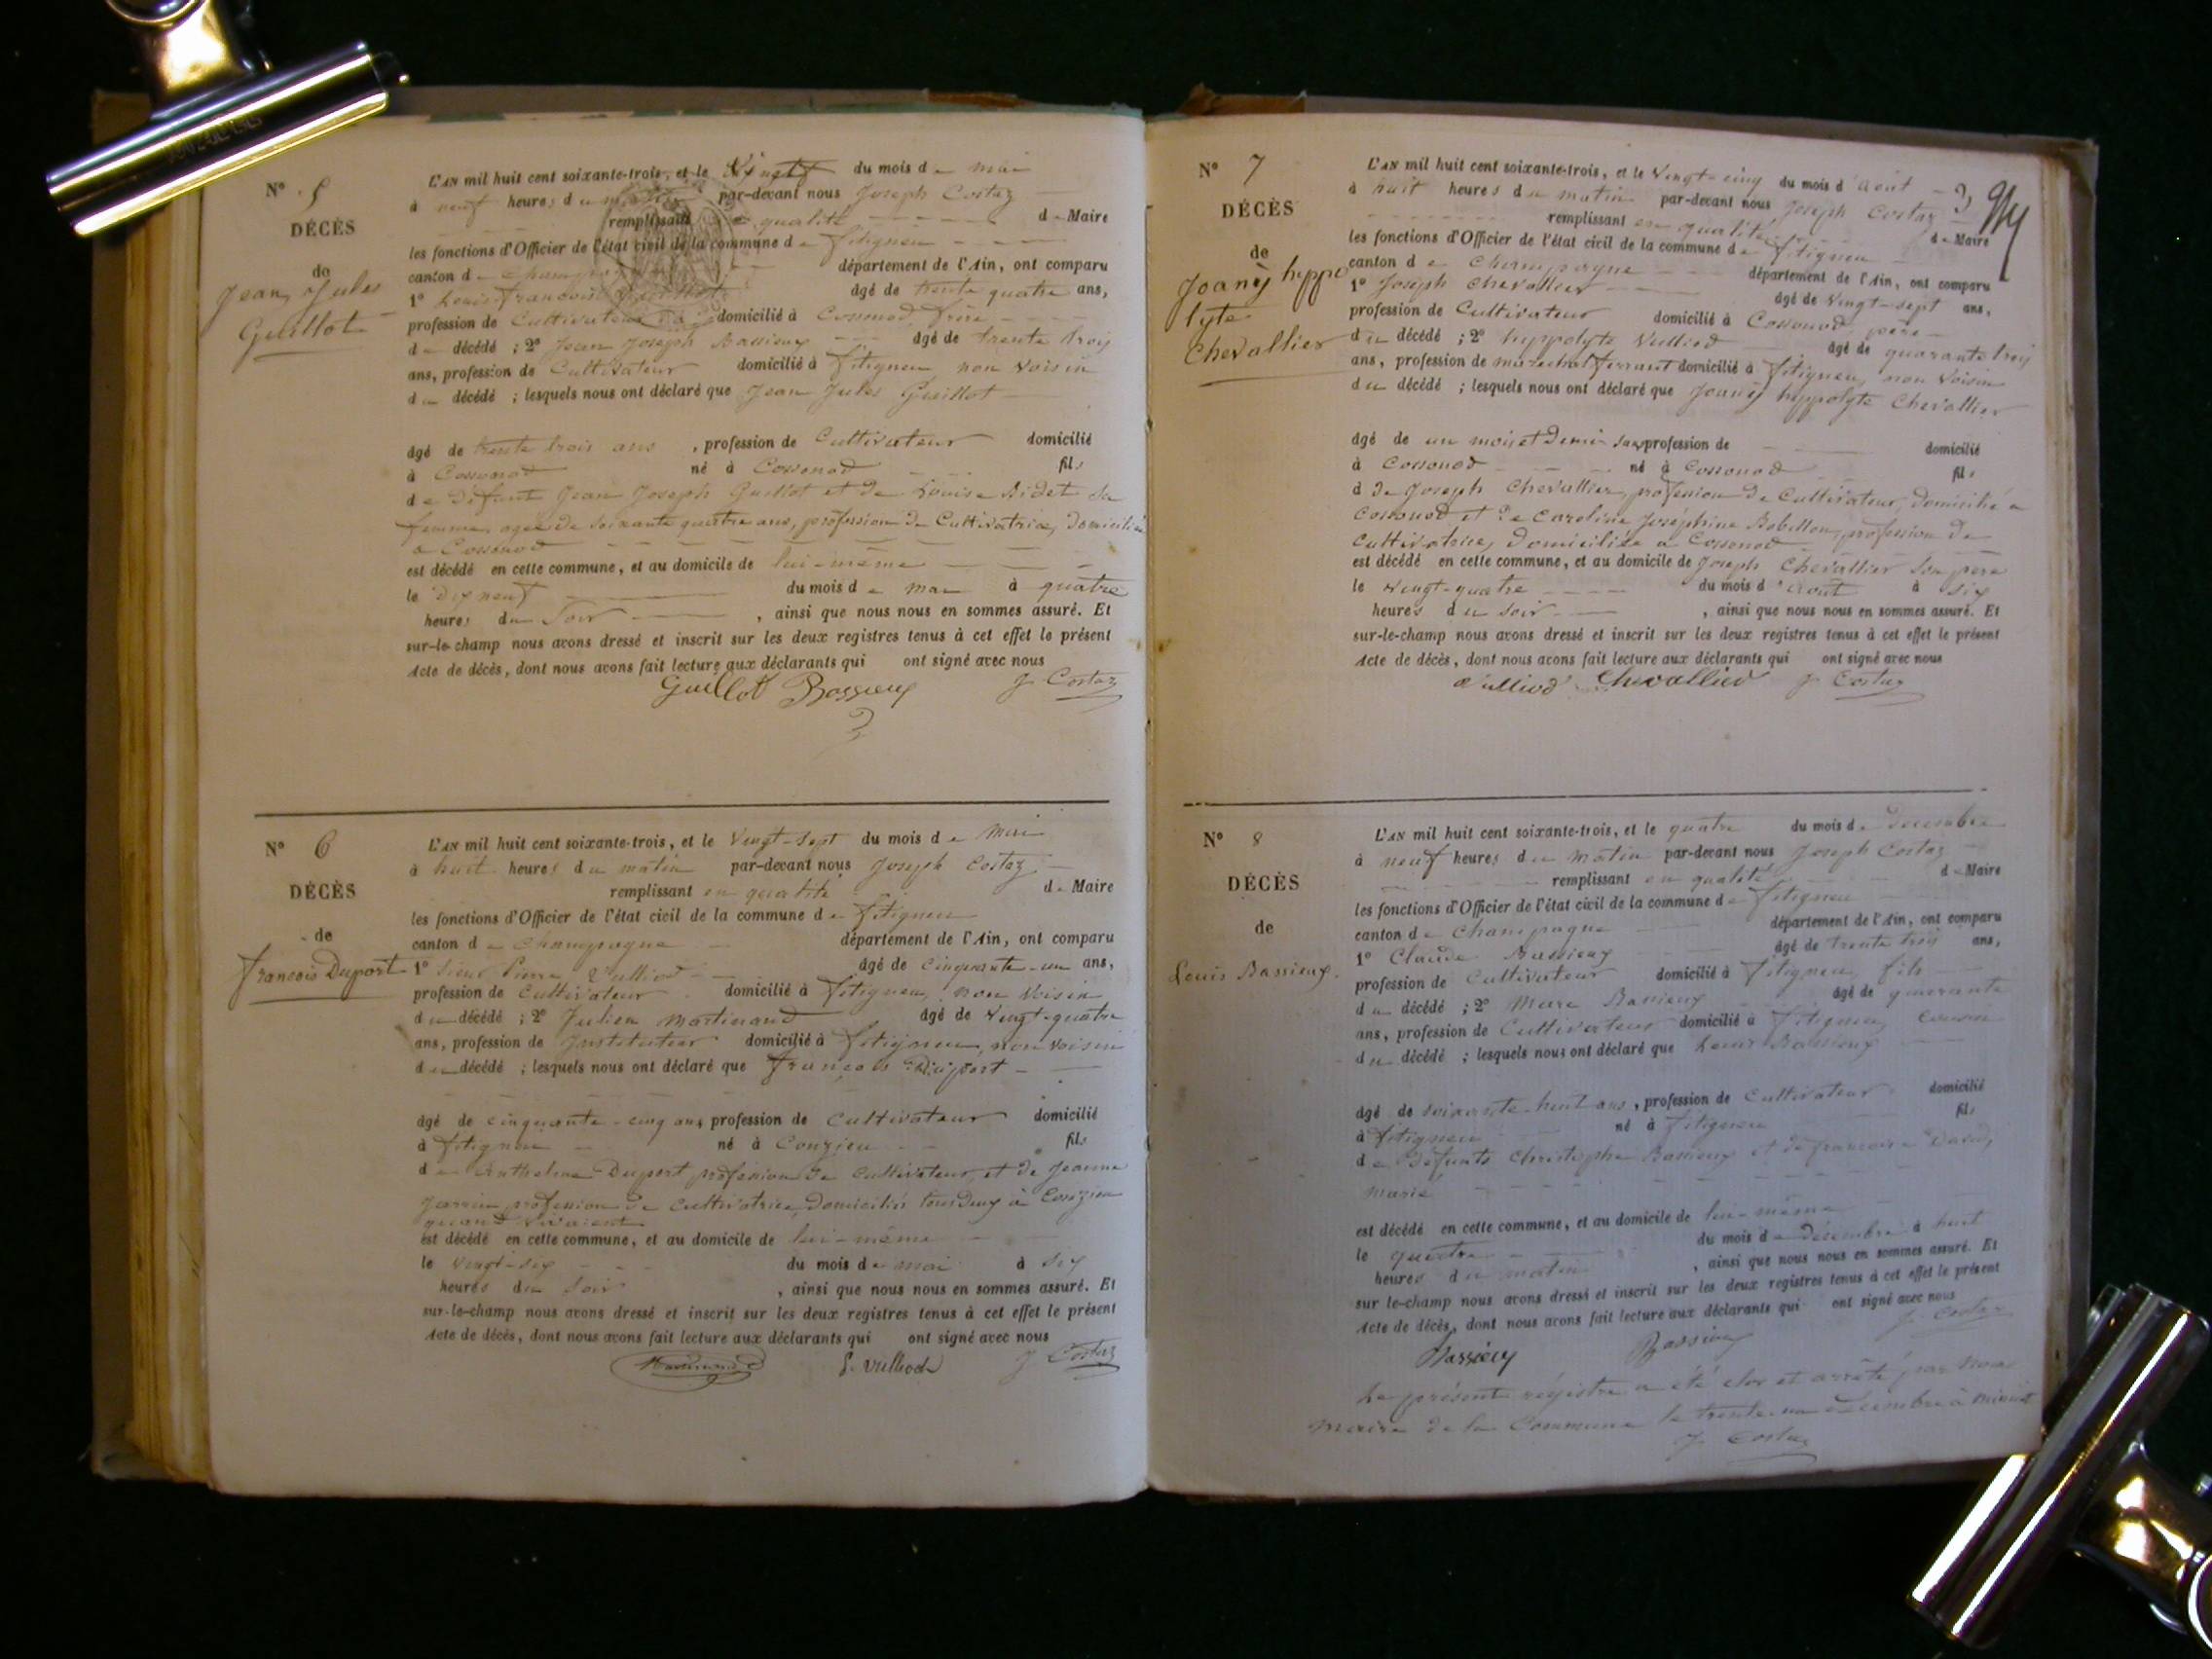 N° 5
DÉCÈS
de
Jean Jules
Guillot
L'AN mil huit cent soixante-trois, et le Vingt du mois de mai
à neuf heures du matin par-devant nous Joseph Costaz
remplissant en qualité de Maire
les fonctions d'Officier de l'état civil de la commune de fitigneu
canton de Champagne département de l'Ain, ont comparu
1° Louis francois Guillot âgé de trente quatre ans,
profession de Cultivateur domicilié à Cossonod frère
du décédé ; 2° Jean Joseph Bassieux âgé de trente trois
ans, profession de Cultivateur domicilié à fitigneu non voisin
du décédé ; lesquels nous ont déclaré que Jean Jules Guillot
âgé de trente trois ans , profession de Cultivateur domicilié
à Cossonod né à Cossonod fils
de défunt Jean Joseph Guillot et de Louise Bidet sa
femme, agée de soixante quatre ans, profession de Cultivatrice, domiciliée
a Cossonod
est décédé en cette commune, et au domicile de lui-même
le dix neuf du mois de mai à quatre
heures du soir , ainsi que nous nous en sommes assuré. Et
sur-le-champ nous avons dressé et inscrit sur les deux registres tenus à cet effet le présent
Acte de décès, dont nous avons fait lecture aux déclarants qui ont signé avec nous
Guillot Bassieux J Costaz
N° 6
DÉCÈS
de
francois Duport
L'AN mil huit cent soixante-trois, et le vingt-sept du mois de Mai
à huit heures du matin par-devant nous Joseph Costaz
remplissant en qualité de Maire
les fonctions d'Officier de l'état civil de la commune de fitigneu
canton de Champagne département de l'Ain, ont comparu
1° Sieur Pierre Vulliod âgé de cinquante-un ans,
profession de Cultivateur domicilié à fitigneu, non voisin
du décédé ; 2° Julien Martinand âgé de vingt-quatre
ans, profession de Instituteur domicilié à fitigneu, non voisin
du décédé ; lesquels nous ont déclaré que françois Duport
âgé de cinquante-cinq ans, profession de cultivateur domicilié
à fitigneu né à Conzieu fils
de Anthelme Duport profession de cultivateur, et de Jeanne
Jarrin profession de cultivatrice, domiciliés tous deux à Conzieu
quand vivaient
est décédé en cette commune, et au domicile de lui-même
le vingt-six du mois de mai à six
heures du soir , ainsi que nous nous en sommes assuré. Et
sur-le-champ nous avons dressé et inscrit sur les deux registres tenus à cet effet le présent
Acte de décès, dont nous avons fait lecture aux déclarants qui ont signé avec nous
Martinand P. Vulliod J Costaz
N° 7
DÉCÈS
de
Joanij hippo
lyte
Chevallier
L'AN mil huit cent soixante-trois, et le vingt-cinq du mois d'août
à huit heures du matin par-devant nous Joseph Costaz
remplissant en qualité de Maire
les fonctions d'Officier de l'état civil de la commune de fitigneu
canton de Champagne département de l'Ain, ont comparu
1° Joseph Chevallier âgé de vingt-sept ans,
profession de Cultivateur domicilié à Cossonod père
du décédé ; 2° hyppolyte Vulliod âgé de quarante trois
ans, profession de maréchal ferrant domicilié à fitigneu, non voisin
du décédé ; lesquels nous ont déclaré que Joanij hippolyte Chevallier
âgé de un mois et demi sans profession de domicilié
à Cossonod né à Cossonod fils
d de Joseph Chevallier, profession de Cultivateur, domicilié a
Cossonod et de Caroline Joséphine Bobillon, profession de
Cultivatrice, domiciliée a Cossonod
est décédé en cette commune, et au domicile de Joseph Chevallier son père
le vingt-quatre du mois d'août à six
heures du soir , ainsi que nous nous en sommes assuré. Et
sur-le-champ nous avons dressé et inscrit sur les deux registres tenus à cet effet le présent
Acte de décès, dont nous avons fait lecture aux déclarants qui ont signé avec nous
Vulliod Chevallier J Costaz
N° 8
DÉCÈS
de
Louis Bassieux
L'AN mil huit cent soixante-trois, et le quatre du mois de Décembre
à neuf heures du matin par-devant nous Joseph Costaz
remplissant en qualité de Maire
les fonctions d'Officier de l'état civil de la commune de fitigneu
canton de Champagne département de l'Ain, ont comparu
1° Claude Bassieux âgé de trente trois ans,
profession de Cultivateur domicilié à fitigneu, fils
du décédé ; 2° Marc Bassieux âgé de quarante
ans, profession de Cultivateur domicilié à fitigneu cousin
du décédé ; lesquels nous ont déclaré que Louis Bassieux
âgé de soixante-huit ans, profession de Cultivateur domicilié
à fitigneu né à fitigneu fils
de Défunts Christophe Bassieux et de francoise David,
marié
est décédé en cette commune, et au domicile de lui-même
le quatre du mois de décembre à huit
heures du matin , ainsi que nous nous en sommes assuré. Et
sur le-champ nous avons dressé et inscrit sur les deux registres tenus à cet effet le présent
Acte de décès, dont nous avons fait lecture aux déclarants qui ont signé avec nous
Bassieux Bassieux J Costaz
Le présent régistre a été clos et arrêté par nous
Maire de la Commune le trente-un décembre à minuit
J Costaz